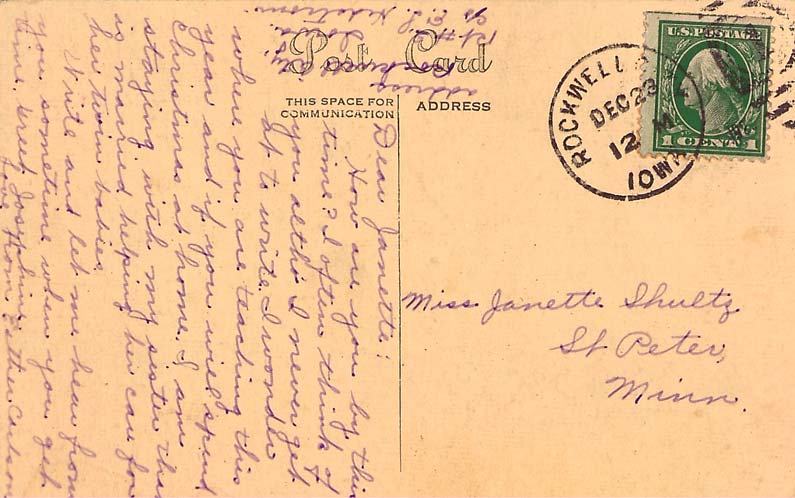 Post Card
THIS SPACE FOR
COMMUNICATION
ADDRESS
U.S. POSTAGE
1 CENT 1
ROCKWELL
DEC 23
12 M
IOWA
Miss Janette Shultz
St Peter,
Minn.
Dear Janette:
How are you by this
time? I often think of
you altho I never get
at to write. I wonder
where you are teaching this
year and if you will spend
Christmas at home. I am
staying with my sister that
is married helping her care for
her twin babies.
Write and let me hear from
you sometime when you get
time. Greet Josephine
Love from Esther Carlson
address
Iowa